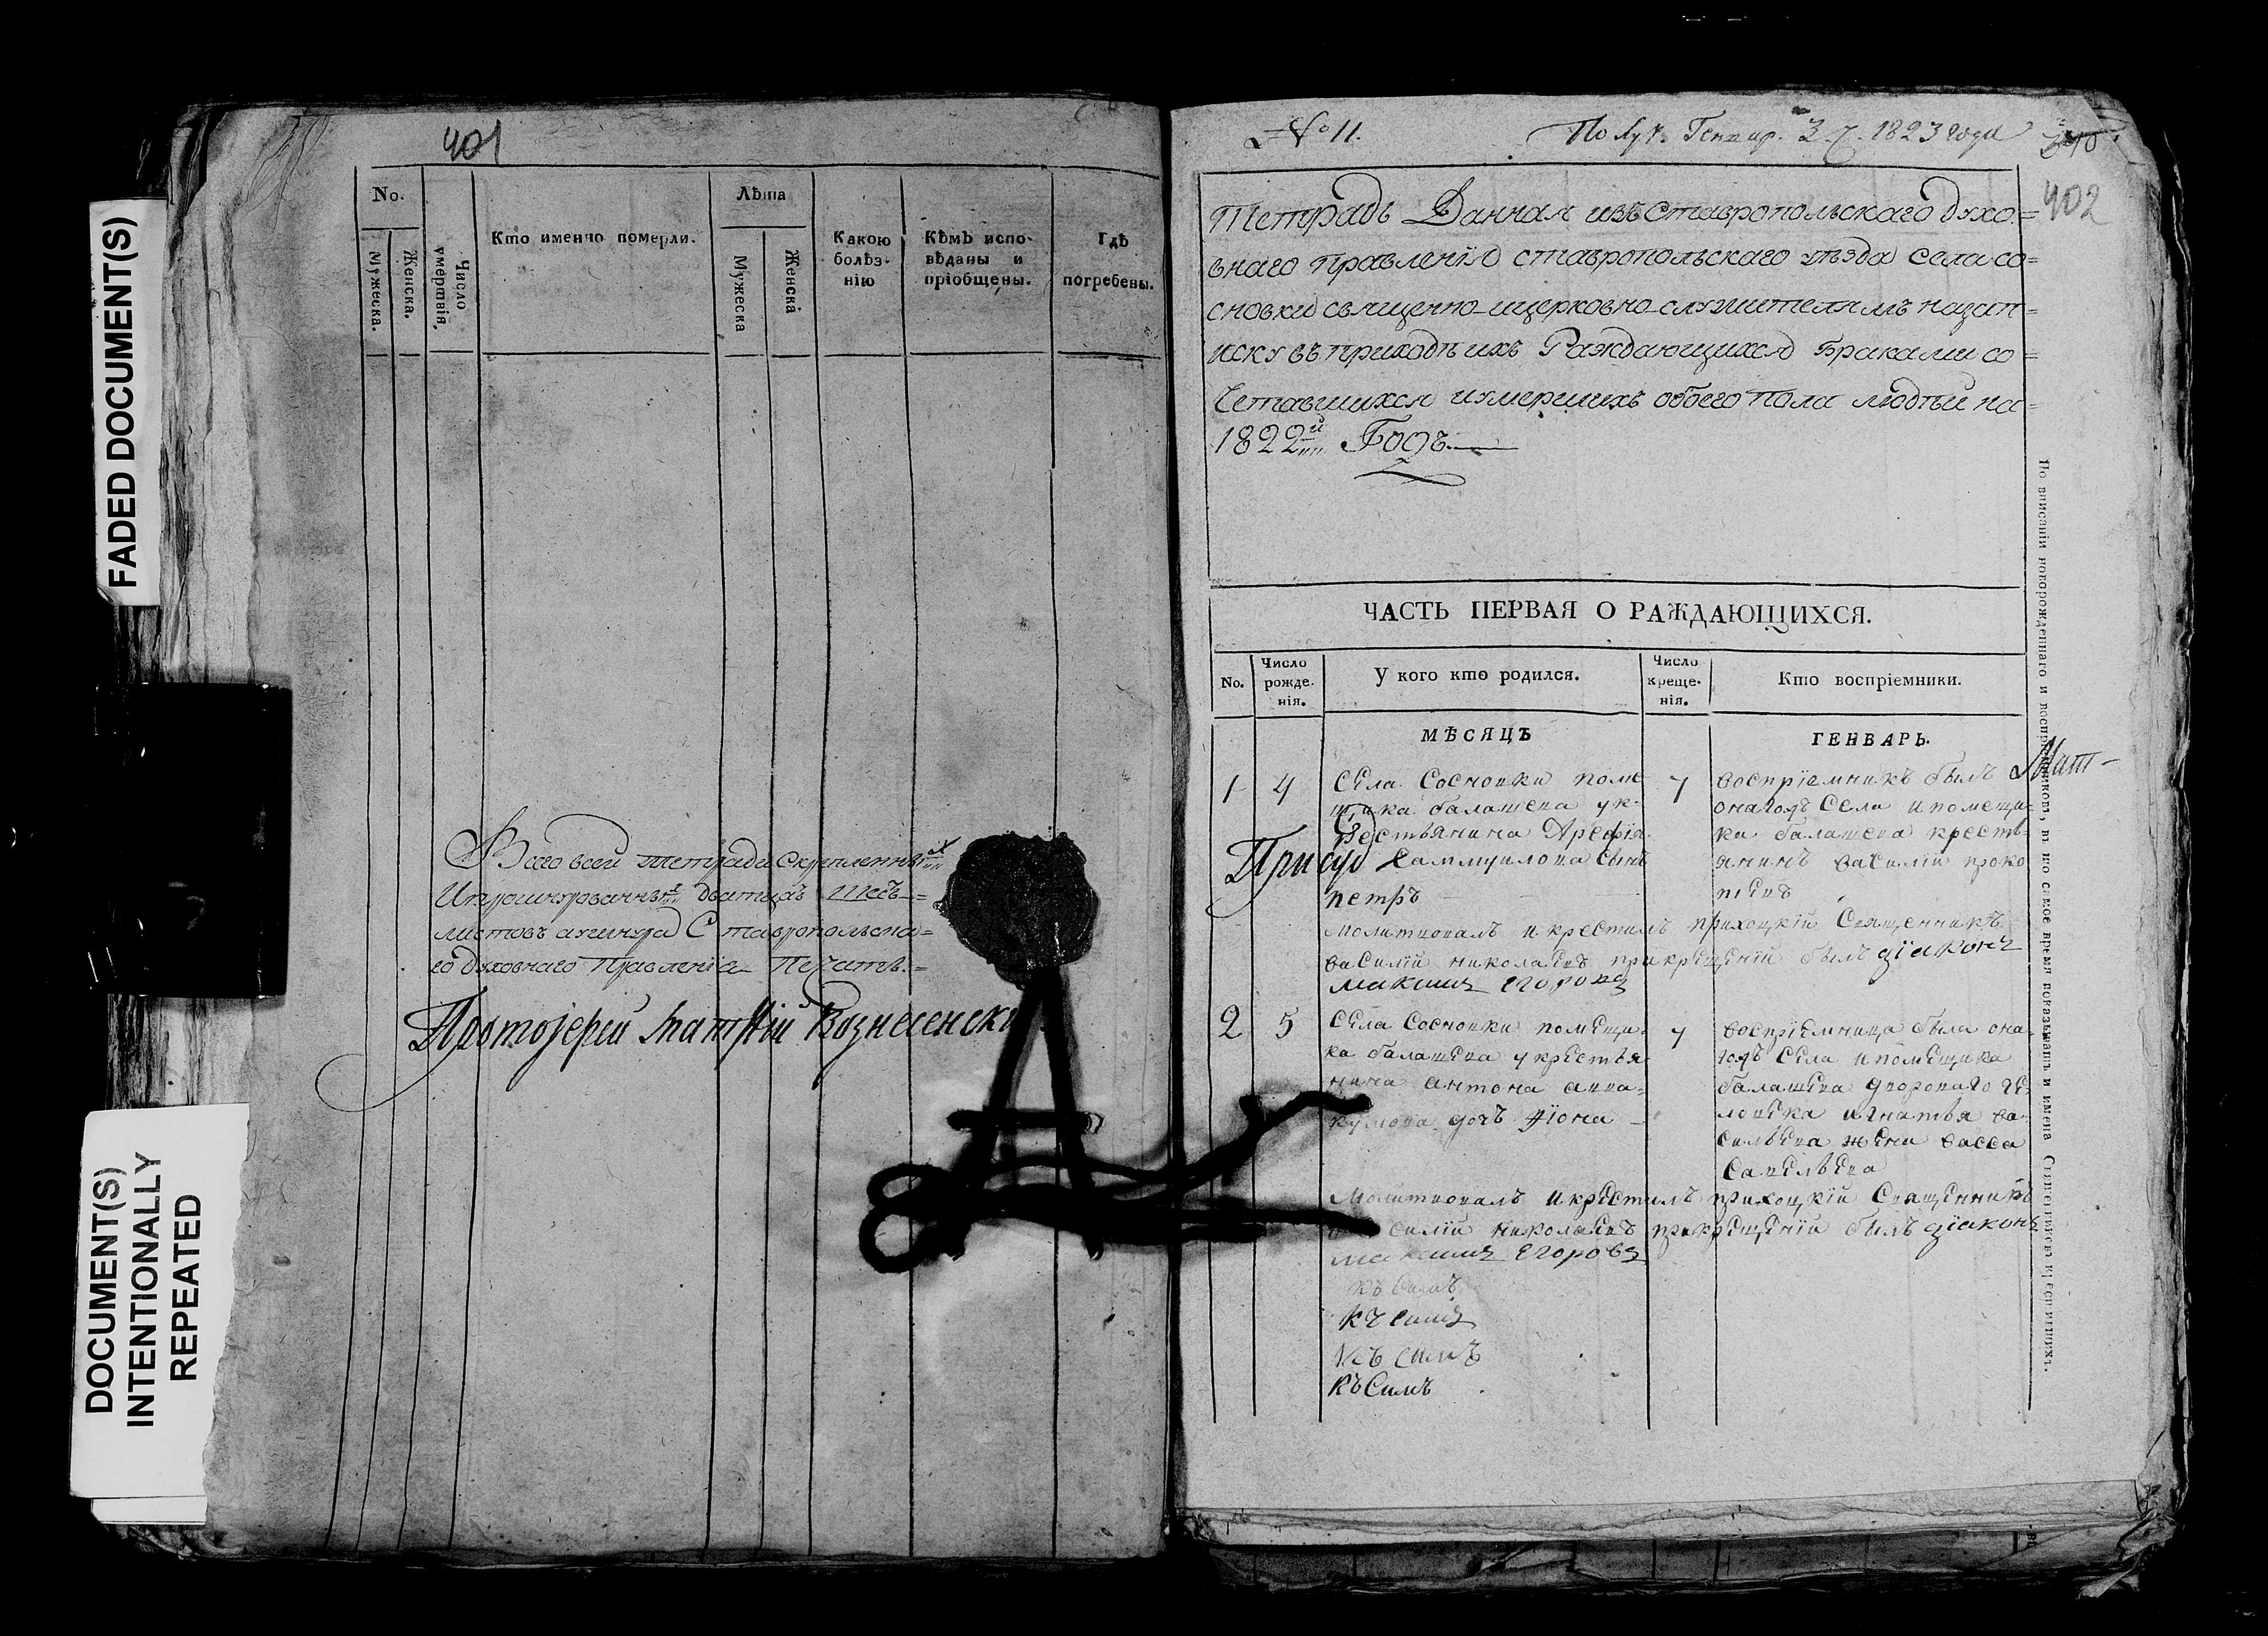 FADED DOCUMENT(S)
DOCUMENT(S)
INTENTIONALLY
REPEATED
401
No.
Мужеска.
Женска.
Число
умертвія.
Кто именно померли.
Лѣта
Мужеска
Женскі
Какою
болѣз-
нію
Кѣмъ испо-
вѣданы и
пріобщены.
Гдѣ
погребены.
Всего всей тетради скрепленных
листовъ Ставропольска=
го духовнаго Правленіа Печать.=
Протоіерей Матѳій Вознесенскі
№ 11.
Получ. Генвар. 3 ч. 1823 года
402
Тетрадь Данная изъ Ставропольскаго духо=
внаго правленія ставропольскаго уѣзда села со=
сновки священно-ицерковно-служителямъ назап=
иску въ приходѣ ихъ Раждающихся Браками со=
четавшихся иумершихъ обоего пола людѣй на=
1822й Годъ.
ЧАСТЬ ПЕРВАЯ О РАЖДАЮЩИХСЯ.
No.
Число
рожде-
нія.
У кого кто родился.
Число
креще-
нія.
Кто воспріемники.
МѢСЯЦЪ
ГЕНВАРЬ.
1
4
Села Сосновки поме
щика балашева ук-
рестьянина Арефія
Саммуилова сынъ
петръ
Присуд
7
воспріемникъ былъ
онагожъ Села ипомещи
ка балашева кресть
янинъ василій проко
піевъ
Мат-
молитвовалъ и крестилъ прихоцкій Священникъ
василій николаевъ прикрещеній былъ діаконъ
максимъ Егоровъ
2
5
Села Сосновки помещи-
ка балашева укрестья
нина антона авва-
кумова дочь Ѳіона
7
воспріемница была она-
гожъ Села ипомещика
балашева двороваго че-
ловека игнатья ва-
сильева жена васса
Савельева
Молитвовалъ икрестилъ прихоцкій Священникъ
василій николаевъ прикрещеній былъ діаконъ
максимъ Егоровъ
къ Симъ
къ симъ
Къ симъ
къ Симъ
По вписаніи новорожденнаго и воспріемниковъ, въ то самое время показывать и имена Священниковъ крестившихъ.